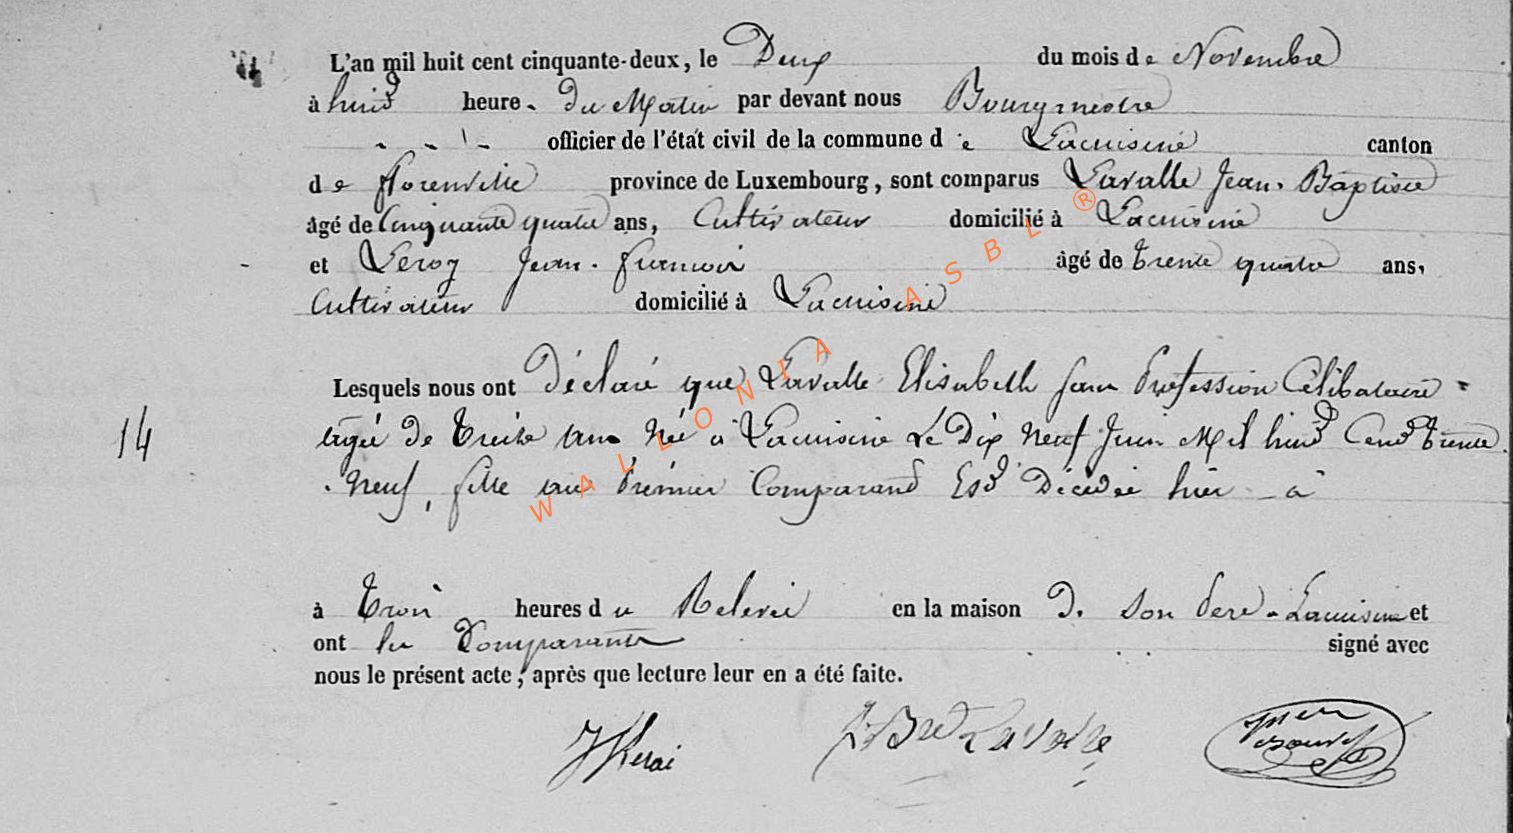 L'an mil huit cent cinquante-deux, le Deux du mois de Novembre
à huit heure. du Matin par devant nous Bourgmestre
officier de l'état civil de la commune de Lacuisine canton
de florenville province de Luxembourg, sont comparus Lavalle Jean-Baptiste
âgé de Cinquante quatre ans, Cultivateur domicilié à Lacuisine
et Leroy Jean-francois âgé de trente quatre ans,
Cultivateur domicilié à Lacuisine
Lesquels nous ont Déclaré que Lavalle Elisabeth sans Profession Célibataire
14 agée de treize ans Née à Lacuisine Le Dix Neuf Juin Mil huit Cent trente
Neuf, fille au Prémier Comparant Est Décédée hier à
à trois heures du Relevée en la maison De son Pere Lacuisine et
ont les Comparants signé avec
nous le présent acte, après que lecture leur en a été faite.
Lavalle
WALLONIA ASBL ®